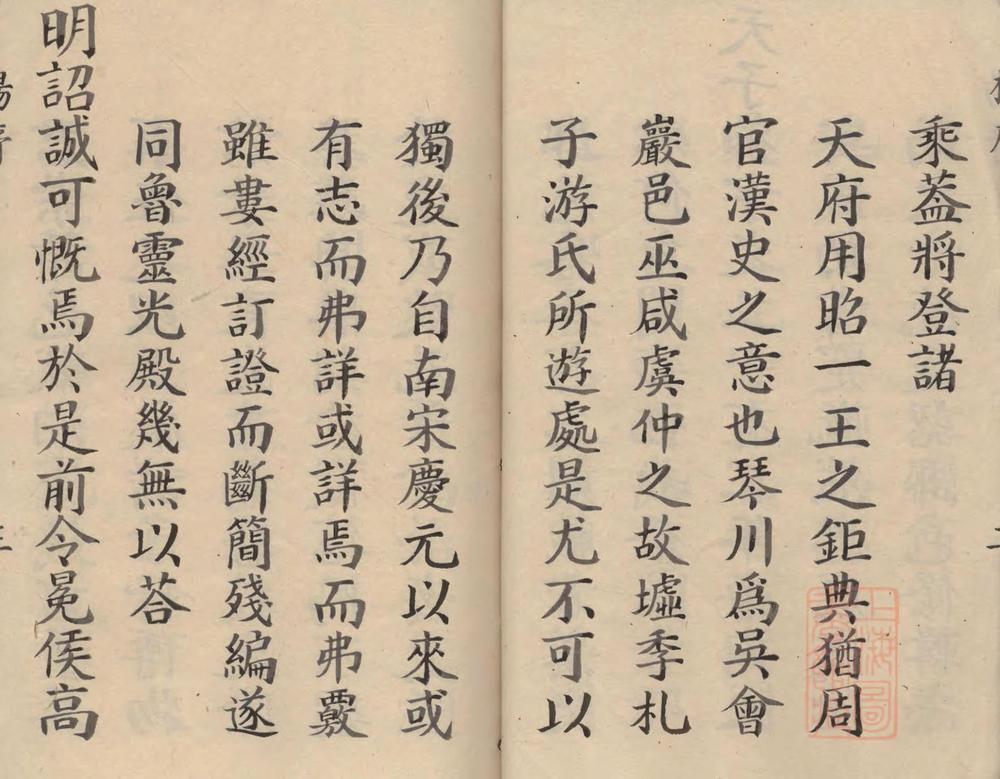 乘葢將登諸
天府用昭一王之鉅典猶周
官漢史之意也琴川爲吳會
巖邑巫咸虞仲之故墟季札
子游氏所遊處是尤不可以
獨後乃自南宋慶元以來或
有志而弗詳或詳焉而弗覈
雖婁經訂證而斷簡殘編遂
同魯靈光殿幾無以荅
明詔誠可慨焉於是前令冕侯高